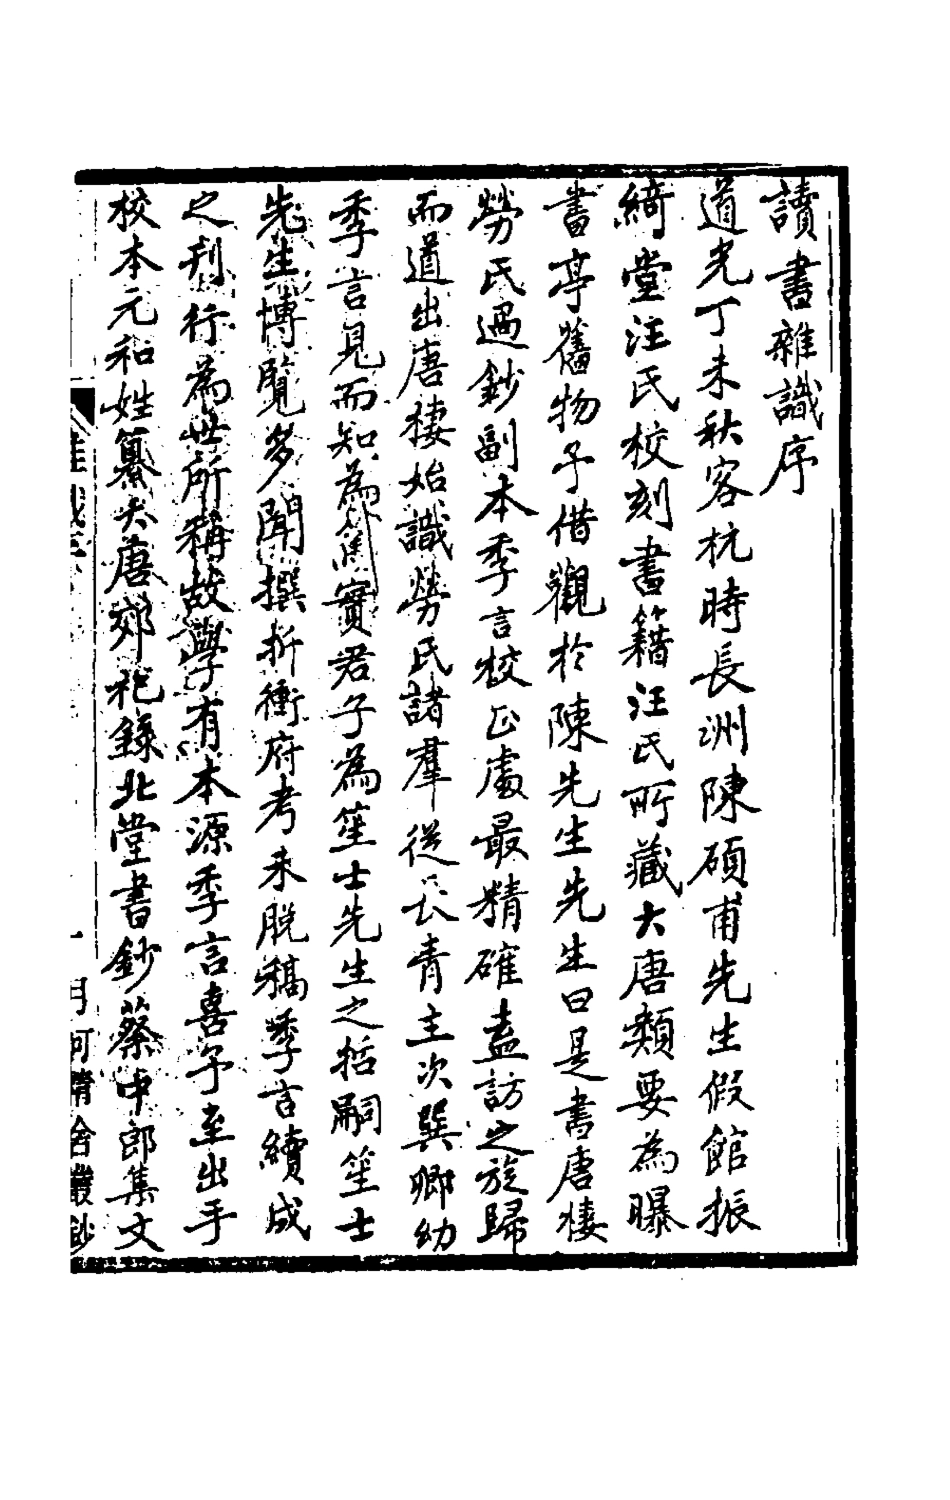 讀書雜識序
道光丁未秋客杭時長洲陳碩甫先生假館振
綺堂汪氏校刻書籍汪氏所藏大唐類要為曝
書亭舊物予借觀於陳先生先生曰是書唐棲
勞氏過鈔副本季言校正處最精確盍訪之旋歸
而道出唐棲始識勞氏諸羣從長青主次巽卿幼
季言見而知為篤實君子為笙士先生之哲嗣笙士
先生博覽多聞撰折衝府考未脫稿季言續成
之刊行為世所稱故學有本源季言喜予至出手
校本元和姓纂大唐郊祀錄北堂書鈔蔡中郎集文